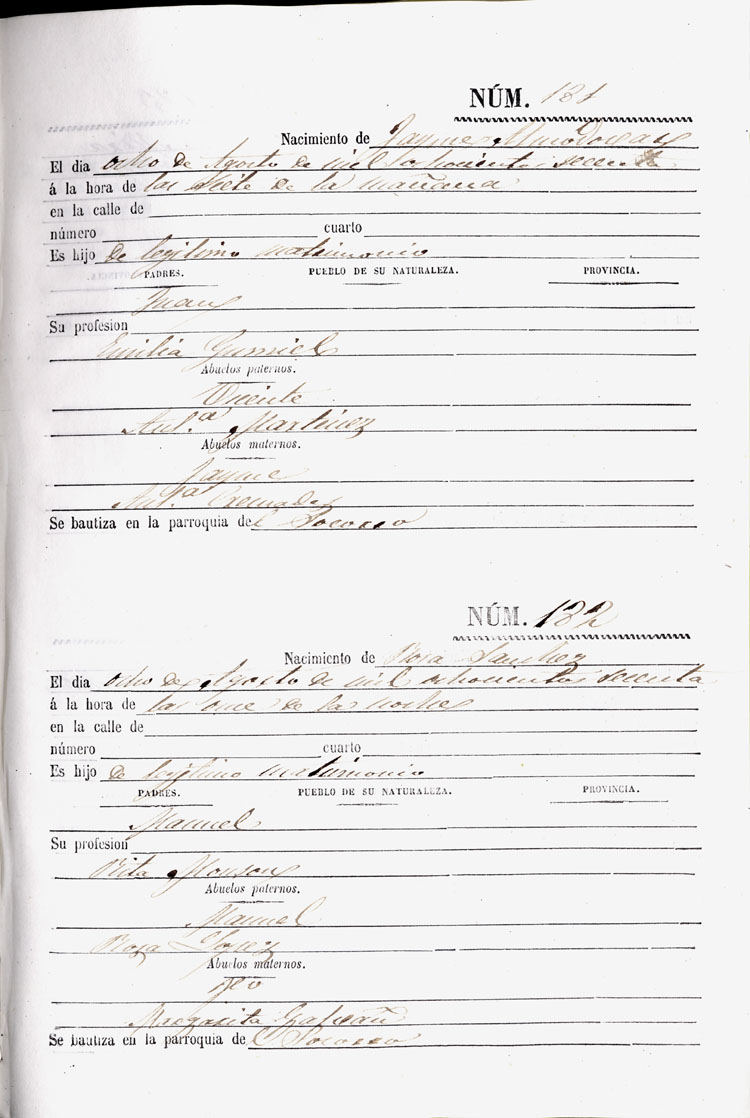 NÚM. 181
Nacimiento de Jayme
El dia ocho de Agosto de mil ochocientos secenta
á la hora de las siete de la mañana
en la calle de
número cuarto
Es hijo de legitimo matrimonio
PADRES. PUEBLO DE SU NATURALEZA. PROVINCIA.
Juan
Su profesion
Emilia Gumiel
Abuelos paternos.
Vicente
Ant.ª Martinez
Abuelos maternos.
Jayme
Ant.ª Cremades
Se bautiza en la parroquia del Socorro
NÚM. 182
Nacimiento de Rosa Sanchez
El dia ocho de Agosto de mil ochocientos secenta
á la hora de las once de la noche
en la calle de
número cuarto
Es hijo de legitimo matrimonio
PADRES. PUEBLO DE SU NATURALEZA. PROVINCIA.
Manuel
Su profesion
Rita Monson
Abuelos paternos.
Manuel
Rosa Lopez
Abuelos maternos.
Margarita Galvañ
Se bautiza en la parroquia del Socorro